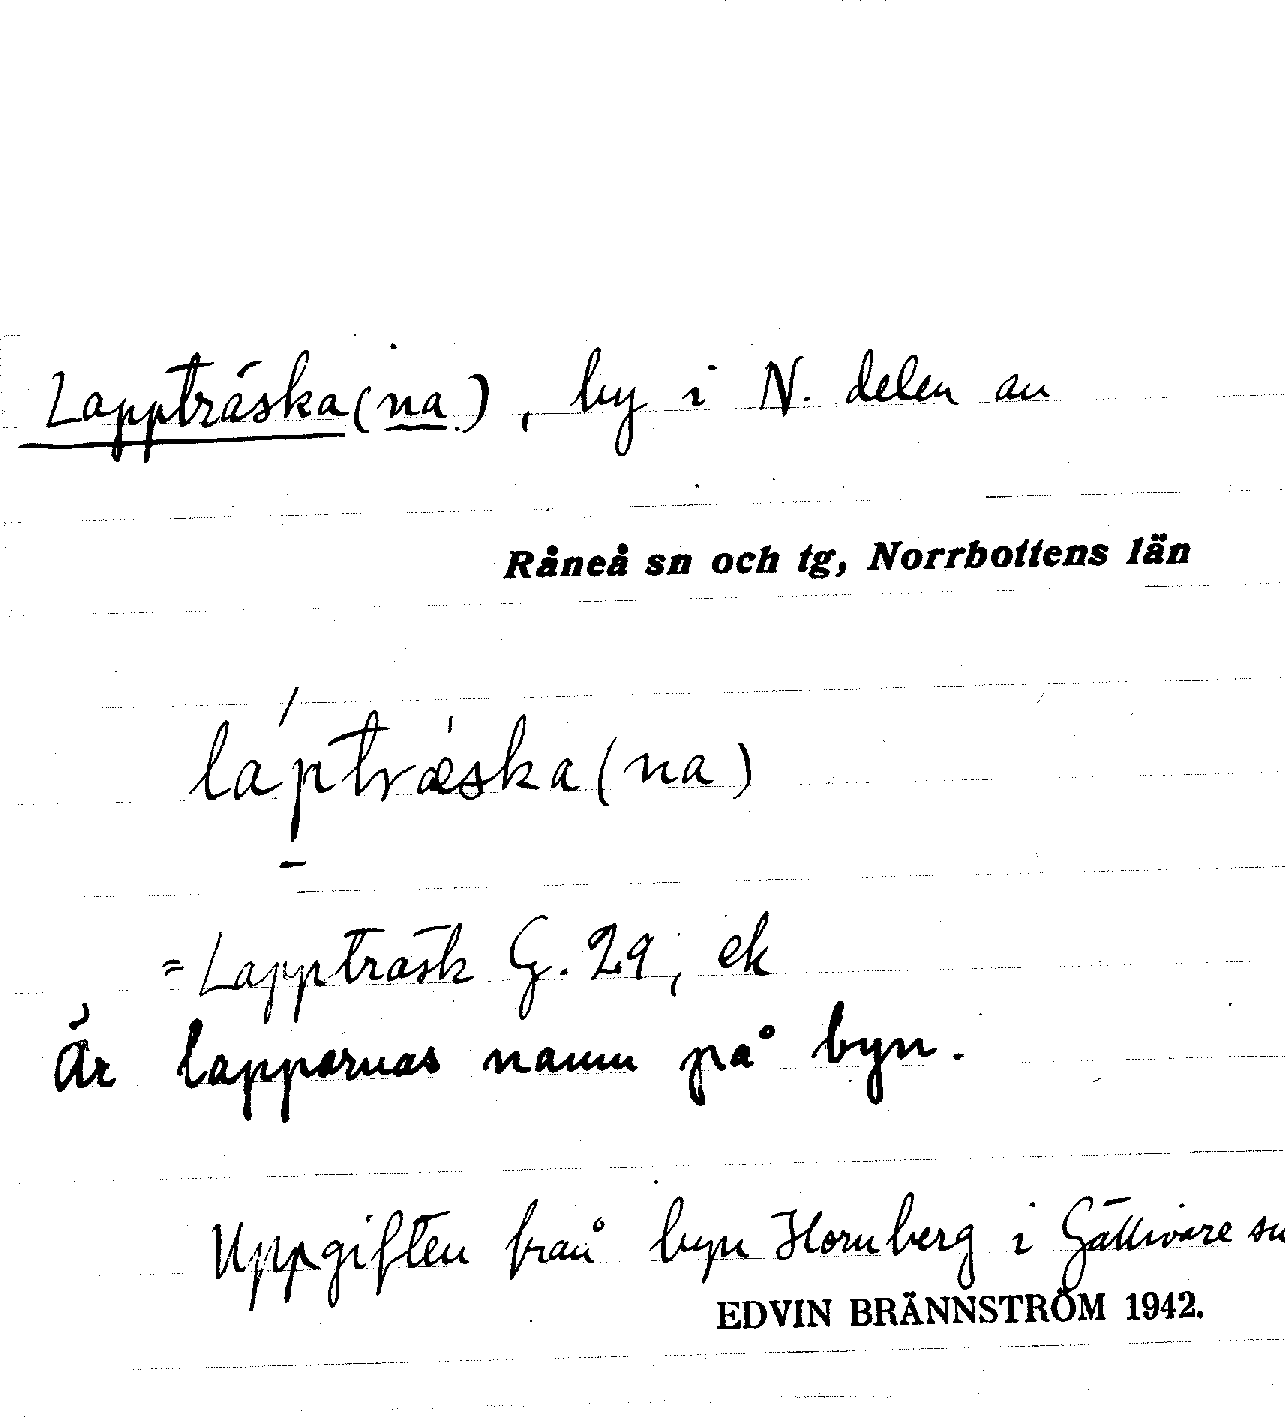 Lappträska(na), by i N. delen av
Råneå sn och tg, Norrbottens län
láptrǽska(na)
= Lappträsk G. 29, ek
Är lapparnas namn på byn.
Uppgiften från byn Hornberg i Gällivare sn
EDVIN BRÄNNSTRÖM 1942.